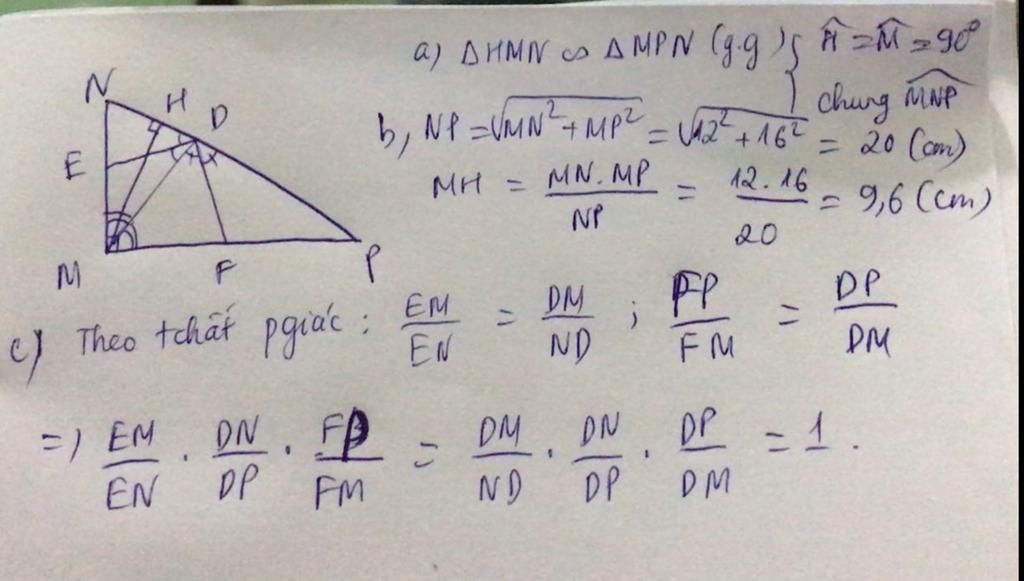 a) ΔHMN ∽ ΔMPN (g.g) { Ĥ = M̂ = 90°
chung \widehat{MNP}
b, NP = √(MN² + MP²) = √(12² + 16²) = 20 (cm)
MH = \frac{MN.MP}{NP} = \frac{12.16}{20} = 9,6 (cm)
N
H
D
E
M
F
P
c) Theo tchất pgiác : \frac{EM}{EN} = \frac{DM}{ND} ; \frac{FP}{FM} = \frac{DP}{DM}
=) \frac{EM}{EN} . \frac{DN}{DP} . \frac{FP}{FM} = \frac{DM}{ND} . \frac{DN}{DP} . \frac{DP}{DM} = 1 .